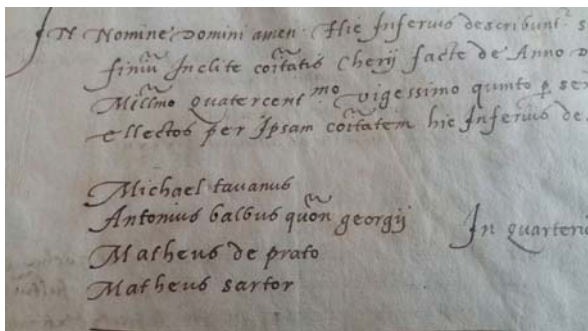 In Nomine Domini amen Hic Inferius describunt
finiũ Inclite coĩtatis Cherij facte de Anno D
Millmo quatercent mo vigessimo quinto ꝑ se
ellectos per Ipsam coĩtatem hic Inferius de
Michael tauanus
Antonius balbus quõn georgij In quarterio
Matheus de prato
Matheus sartor